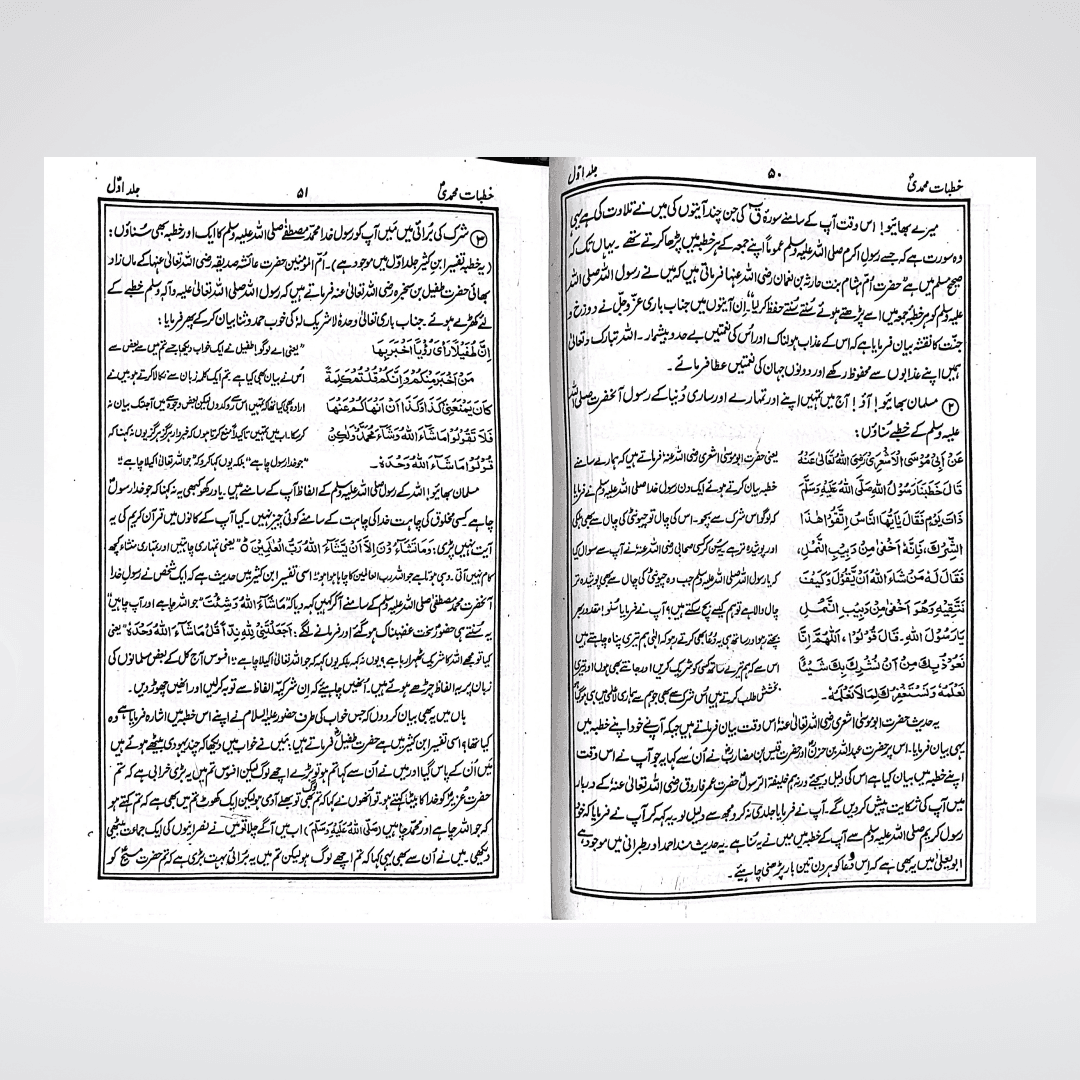 خطبات محمدیؐ ۵۰ جلد اوّل
میرے بھائیو! اس وقت آپ کے سامنے سورۂ قٓ کی جن چند آیتوں کی میں نے تلاوت کی ہے یہی
وہ سورت ہے کہ جسے رسول اکرم صلی اللہ علیہ وسلم عموماً اپنے جمعہ کے ہر خطبہ میں پڑھا کرتے تھے ۔ یہاں تک کہ
صحیح مسلم میں ہے حضرت اُمّ ہشام بنت حارثہ بن نعمان رضی اللہ عنہا فرماتی ہیں کہ میں نے رسول اللہ صلی اللہ
علیہ وسلم کو ہر خطبہ جمعہ میں اسے پڑھتے ہوئے سُنتے سُنتے حفظ کر لیا۔ اِن آیتوں میں جناب باری عزّوجلّ نے دوزخ و
جنّت کا نقشہ بیان فرمایا ہے کہ اس کے عذاب ہولناک اور اُس کی نعمتیں بے حد و بیشمار ۔ اللہ تبارک وتعالیٰ
ہمیں اپنے عذابوں سے محفوظ رکھے اور دونوں جہان کی نعمتیں عطا فرمائے ۔
۲ مسلمان بھائیو! آؤ! آج میں تمہیں اپنے اور تمہارے اور ساری دُنیا کے رسول آنحضرت صلی اللہ
علیہ وسلم کے خطبے سُناؤں :
عَنْ اَبِیْ مُوْسَی الْاَشْعَرِیِّ رَضِیَ اللّٰہُ تَعَالٰی عَنْہُ یعنی حضرت ابوموسیٰ اشعری رضی اللہ عنہ فرماتے ہیں کہ ہمارے سامنے
قَالَ خَطَبَنَا رَسُوْلُ اللّٰہِ صَلَّی اللّٰہُ عَلَیْہِ وَسَلَّمَ خطبہ بیان کرتے ہوئے ایک دن رسول خدا صلی اللہ علیہ وسلم نے فرمایا
ذَاتَ یَوْمٍ فَقَالَ یٰاَیُّھَا النَّاسُ اِتَّقُوْا ھٰذَا کہ لوگو اس شرک سے بچو ۔ اس کی چال تو چیونٹی کی چال سے بھی ہلکی
الشِّرْکَ، فَاِنَّہٗ اَخْفٰی مِنْ دَبِیْبِ النَّمْلِ، اور پوشیدہ تر ہے یہ سُن کر کسی صحابی رضی اللہ عنہ نے آپ سے سوال کیا
فَقَالَ لَہٗ مَنْ شَاءَ اللّٰہُ اَنْ یَّقُوْلَ وَکَیْفَ کہ یا رسول اللہ صلی اللہ علیہ وسلم جب وہ چیونٹی کی چال سے بھی پوشیدہ تر
نَتَّقِیْہِ وَھُوَ اَخْفٰی مِنْ دَبِیْبِ النَّمْلِ چال والا ہے تو ہم کیسے بچ سکتے ہیں؟ آپ نے فرمایا سُنو! مقدور بھر
یَا رَسُوْلَ اللّٰہِ۔ قَالَ قُوْلُوْا، اَللّٰھُمَّ اِنَّا بچتے رہو اور ساتھ ہی یہ دُعا بھی کرتے رہو کہ الٰہی ہم تیری پناہ چاہتے ہیں
نَعُوْذُ بِکَ مِنْ اَنْ نُّشْرِکَ بِکَ شَیْئًا اس سے کہ ہم تیرے ساتھ کسی کو شریک کریں اور جانتے بھی ہوں اور تیری
نَعْلَمُہٗ وَنَسْتَغْفِرُکَ لِمَا لَا نَعْلَمُہٗ۔ بخشش طلب کرتے ہیں اُس شرک سے بھی جو ہم سے ہماری لاعلمی میں ہی ہو گیا ہو
یہ حدیث حضرت ابوموسیٰ اشعری رضی اللہ تعالیٰ عنہ اُس وقت بیان فرماتے ہیں جبکہ آپ نے خود اپنے خطبہ میں
یہی بیان فرمایا، اس پر حضرت عبداللہ بن حزن اور حضرت قیس بن مضارب نے اُن سے کہا یہ جو آپ نے اس وقت
اپنے خطبہ میں بیان کیا ہے اس کی دلیل دیجئے ورنہ ہم خلیفۃ الرسول حضرت عمر فاروق رضی اللہ تعالیٰ عنہ کے دربار
میں آپ کی شکایت پیش کر دیں گے۔ آپ نے فرمایا جلدی نہ کرو مجھ سے دلیل لو۔ یہ کہہ کر آپ نے فرمایا کہ خود
رسول کریم صلی اللہ علیہ وسلم سے آپ کے خطبہ میں میں نے یہ سُنا ہے ۔ یہ حدیث مسند احمد اور طبرانی میں موجود ہے
ابویعلیٰ میں یہ بھی ہے کہ اس دُعا کو ہر دن تین بار پڑھنی چاہیئے ۔
خطبات محمدیؐ ۵۱ جلد اوّل
۳ شرک کی بُرائی میں مَیں آپ کو رسول خدا محمد مصطفےٰ صلی اللہ علیہ وسلم کا ایک اور خطبہ بھی سُناؤں :
(یہ خطبہ تفسیر ابن کثیر جلد اوّل میں موجود ہے)۔ اُمّ المؤمنین حضرت عائشہ صدیقہ رضی اللہ تعالیٰ عنہا کے ماں زاد
بھائی حضرت طفیل بن سخبرہ رضی اللہ تعالیٰ عنہ فرماتے ہیں کہ رسول اللہ صلی اللہ تعالیٰ علیہ وآلہٖ وسلم خطبے کے
لئے کھڑے ہوئے ۔ جناب باری تعالیٰ وحدہٗ لاشریک لہٗ کی خوب حمد و ثنا بیان کر کے پھر فرمایا :
اِنَّ طُفَیْلًا رَاٰی رُؤْیًا اَخْبَرَ بِھَا "یعنی اے لوگو! طفیل نے ایک خواب دیکھا جسے تم میں سے بعض سے
مَنْ اَخْبَرَ مِنْکُمْ وَاِنَّکُمْ قُلْتُمْ کَلِمَۃً اُس نے بیان بھی کیا ہے تم ایک کلمہ زبان سے نکالا کرتے ہو میں نے
کَانَ یَمْنَعُنِیْ کَذَا وَکَذَا اَنْ اَنْھَاکُمْ عَنْھَا ارادہ بھی کیا تھا کہ تمہیں اس سے روکدوں لیکن بعض وجوہ سے میں آجتک بیان نہ
فَلَا تَقُوْلُوْا مَاشَاءَ اللّٰہُ وَشَاءَ مُحَمَّدٌ وَّلٰکِنْ کرسکا، اب میں تمہیں تاکیداً منع کرتا ہوں کہ خبردار ہرگز ہرگز یوں نہ کہنا کہ
قُوْلُوْا مَاشَاءَ اللّٰہُ وَحْدَہٗ۔ "جو خدا رسول چاہے" بلکہ یوں کہا کرو کہ "جو اللہ تعالیٰ اکیلا چاہے"
مسلمان بھائیو! اللہ کے رسول صلی اللہ علیہ وسلم کے الفاظ آپ کے سامنے ہیں ۔ یاد رکھو کبھی یہ نہ کہنا کہ جو خدا رسول
چاہے کسی مخلوق کی چاہت خدا کی چاہت کے سامنے کوئی چیز نہیں ۔ کیا آپ کے کانوں میں قرآن کریم کی یہ
آیت نہیں پڑی: وَمَا تَشَآءُوْنَ اِلَّا اَنْ یَّشَآءَ اللّٰہُ رَبُّ الْعٰلَمِیْنَ ۝ "یعنی تمہاری چاہتیں اور تمہاری منشاء کچھ
کام نہیں آتی ۔ وہی ہوتا ہے جو اللہ رب العالمین کا چاہا ہوا ہو" اسی تفسیر ابن کثیر میں حدیث ہے کہ ایک شخص نے رسول خدا
آنحضرت محمد مصطفےٰ صلی اللہ علیہ وسلم کے سامنے آ کر کہیں کہہ دیا کہ "مَاشَآءَ اللّٰہُ وَشِئْتَ" جو اللہ چاہے اور آپ چاہیں"
یہ سُنتے ہی حضورؐ سخت غضبناک ہو گئے اور فرمانے لگے: اَجَعَلْتَنِیْ لِلّٰہِ نِدًّا؟ قُلْ مَاشَآءَ اللّٰہُ وَحْدَہٗ" یعنی
کیا تو مجھے اللہ کا شریک ٹھہرا رہا ہے؟ یوں نہ کہہ بلکہ یوں کہہ کہ جو اللہ تعالیٰ اکیلا چاہے" افسوس آج کل کے بعض مسلمانوں کی
زبان پر یہ الفاظ چڑھے ہوئے ہیں ۔ اُنہیں چاہیئے کہ اِن شرکیہ الفاظ سے توبہ کر لیں اور انہیں چھوڑ دیں ۔
ہاں میں یہ بھی بیان کر دوں کہ جس خواب کی طرف حضور علیہ السلام نے اپنے اس خطبہ میں اشارہ فرمایا ہے وہ
کیا تھا؟ اسی تفسیر ابن کثیر میں ہے حضرت طفیل فرماتے ہیں: مَیں نے خواب میں دیکھا کہ چند یہودی بیٹھے ہوئے ہیں
مَیں اُن کے پاس گیا اور میں نے اُن سے کہا تم ہو تو بڑے اچھے لوگ لیکن افسوس تم میں یہ بڑی خرابی ہے کہ تم
حضرت عُزیر کو خدا کا بیٹا کہتے ہو، تو اُنھوں نے کہا کہ تم لوگ بھی تو بھلے آدمی ہو لیکن ایک کھوٹ تم میں بھی ہے کہ تم کہتے ہو
کہ جو اللہ چاہے اور محمد چاہیں (صَلَّی اللّٰہُ عَلَیْہِ وَسَلَّمَ) اب میں آگے چلا تو میں نے نصرانیوں کی ایک جماعت بیٹھی
دیکھی ۔ میں نے اُن سے بھی یہی کہا کہ تم اچھے لوگ ہو لیکن تم میں یہ بُرائی بہت بڑی ہے کہ تم حضرت مسیح کو